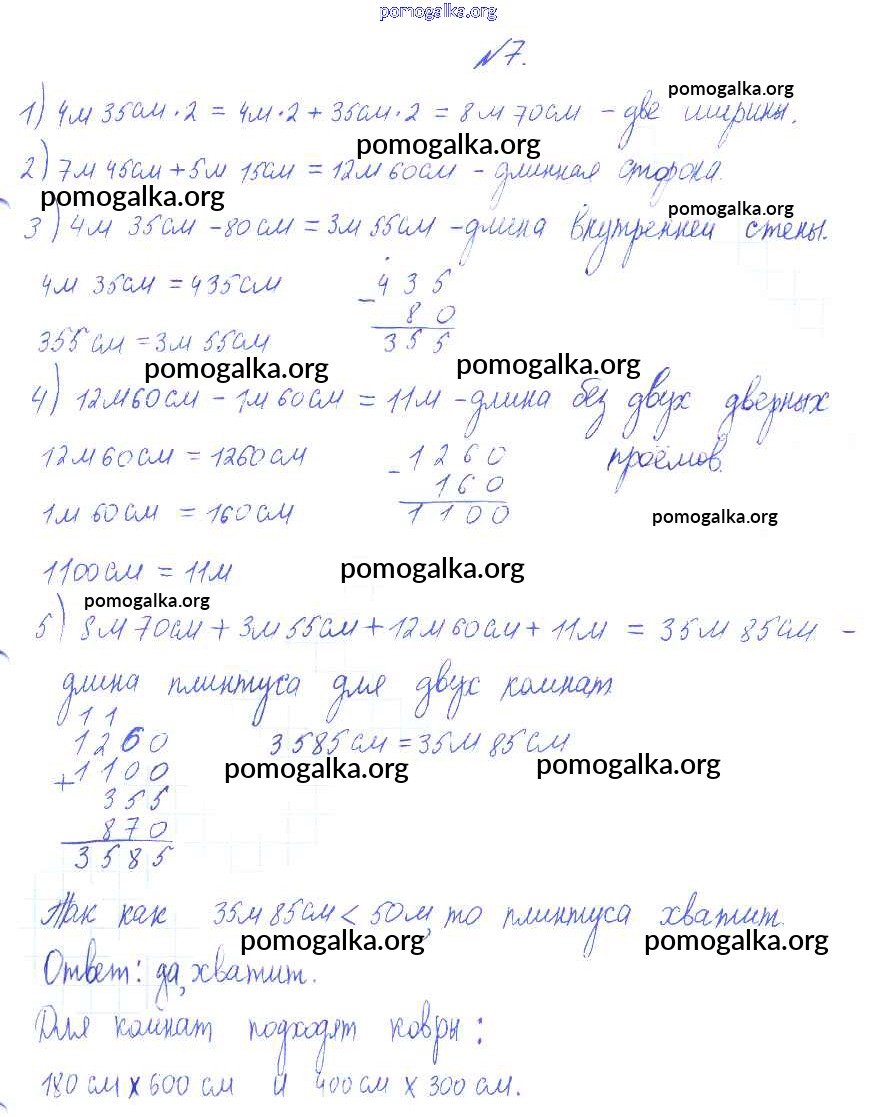 pomogalka.org
№7.
pomogalka.org
1) 4м 35см·2 = 4м·2 + 35см·2 = 8м 70см – две ширины.
pomogalka.org
2) 7м 45см + 5м 15см = 12м 60см – длинная сторона.
pomogalka.org
pomogalka.org
3) 4м 35см – 80см = 3м 55см – длина внутренней стены.
4м 35см = 435см
– 435
80
355см = 3м 55см
355
pomogalka.org
pomogalka.org
4) 12м60см – 1м 60см = 11м – длина без двух дверных
12м60см = 1260см
– 1260
проёмов.
160
1м 60см = 160см
1100
pomogalka.org
1100см = 11м
pomogalka.org
pomogalka.org
5) 8м 70см + 3м 55см + 12м 60см + 11м = 35м 85см –
длина плинтуса для двух комнат
1 1
1260
3585см = 35м 85см
+ 1100
pomogalka.org
pomogalka.org
355
870
3585
Так как 35м 85см < 50м, то плинтуса хватит.
pomogalka.org
pomogalka.org
Ответ: да, хватит.
Для комнат подходят ковры:
180 см х 600 см и 400см х 300 см.